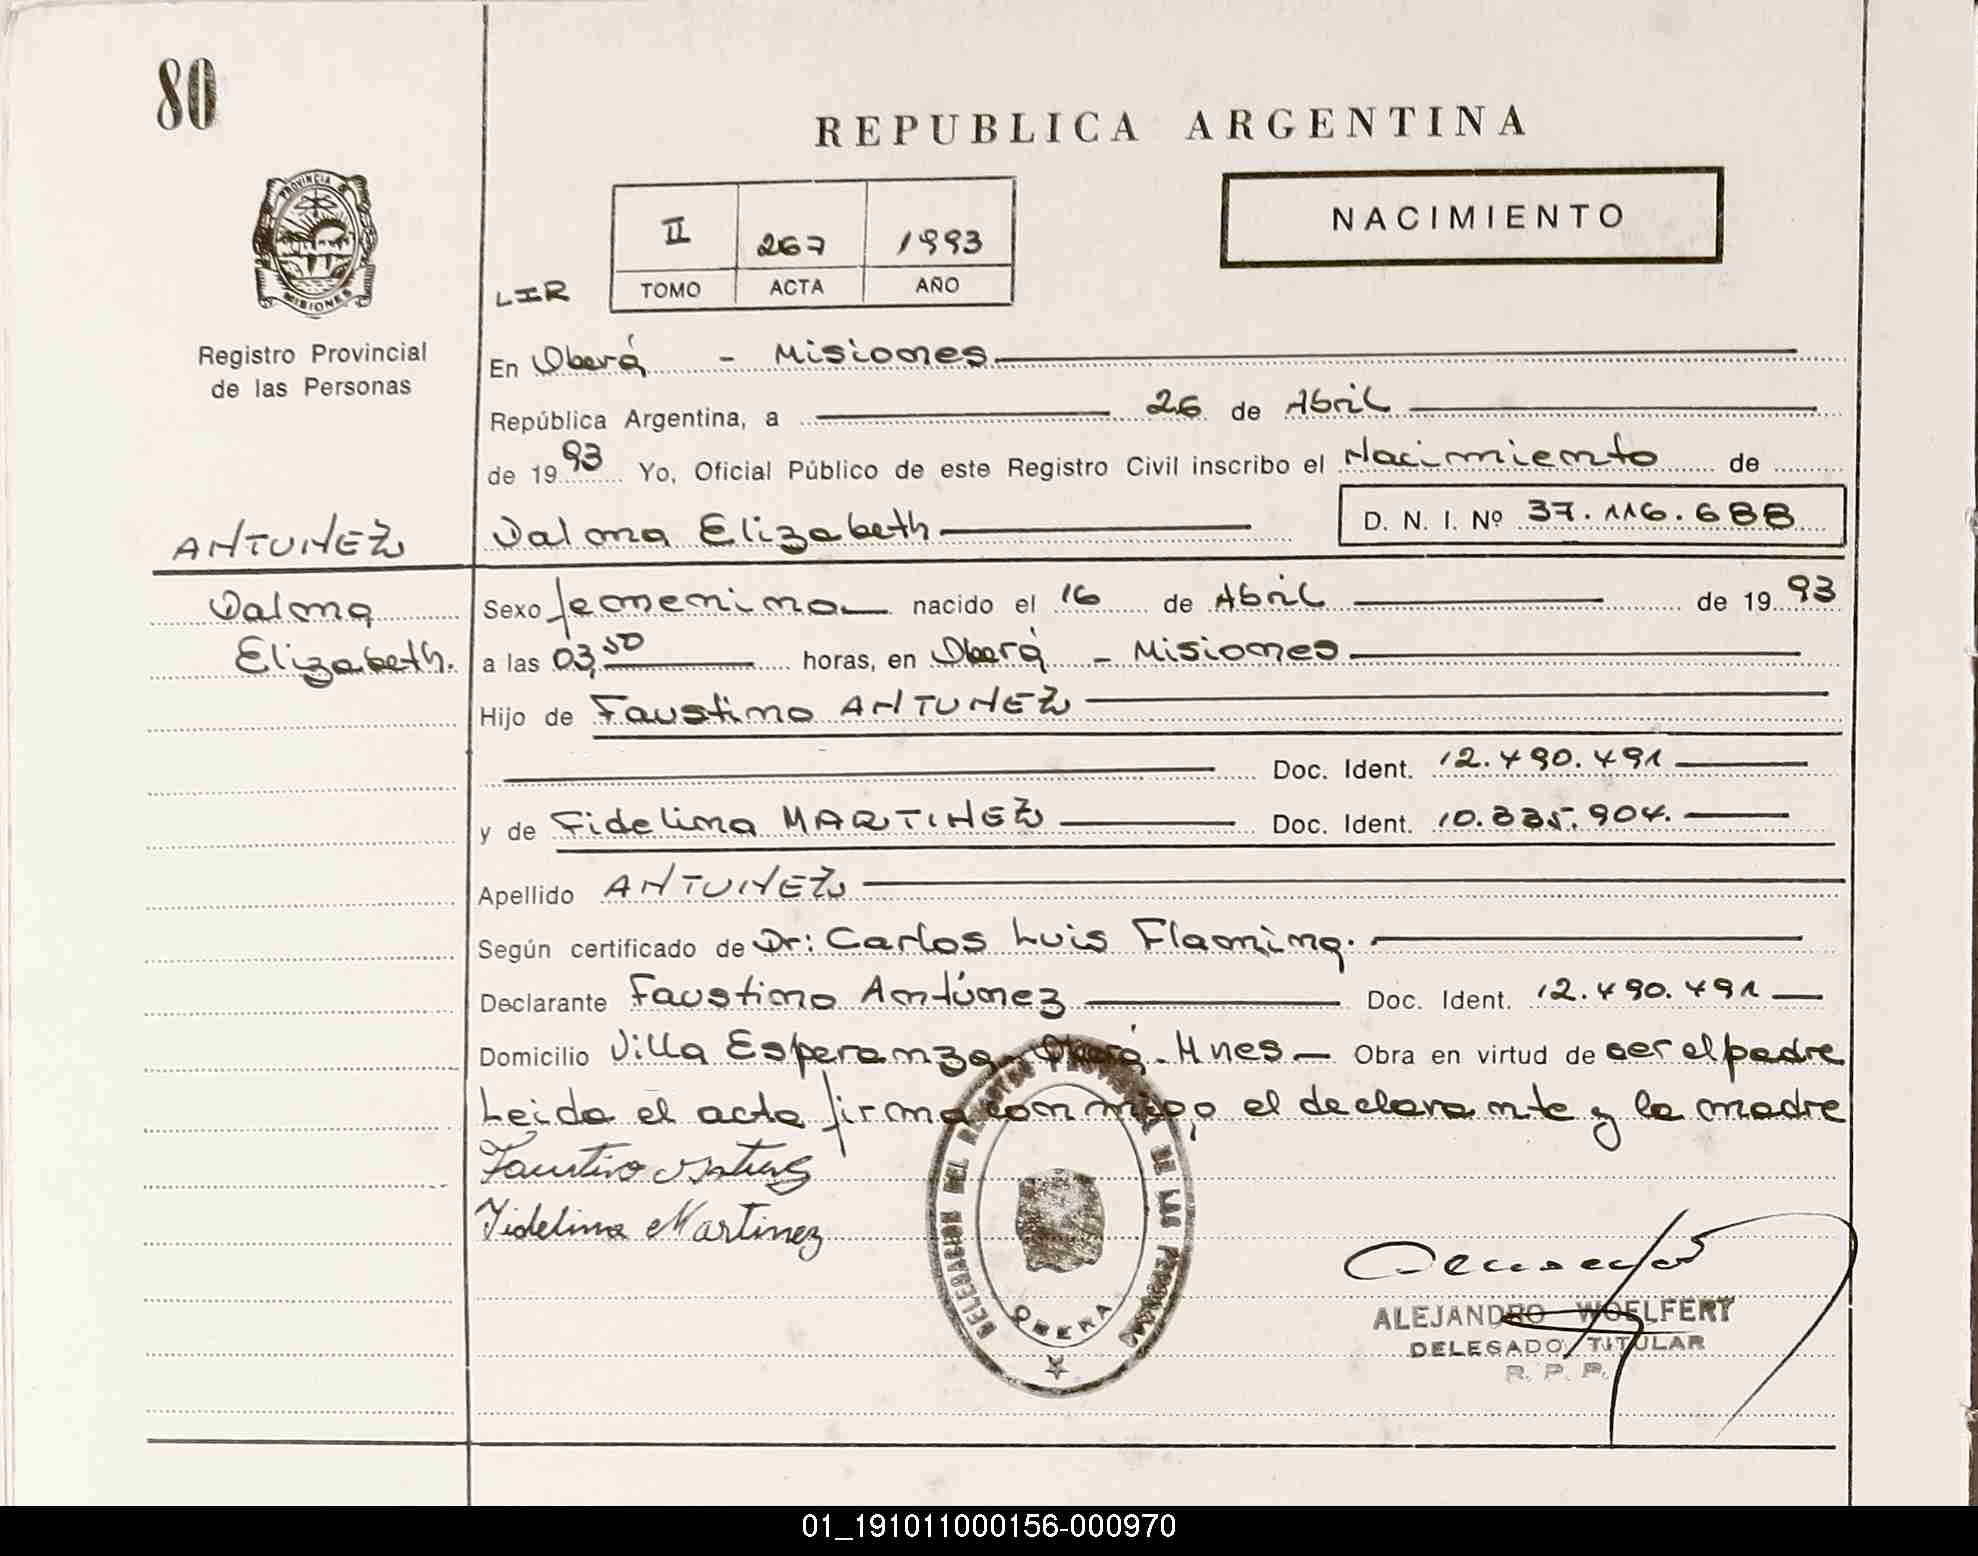 80
REPUBLICA ARGENTINA
NACIMIENTO
PROVINCIA DE
MISIONES
II 267 1993
LIR TOMO ACTA AÑO
Registro Provincial
de las Personas
En Oberá - Misiones
República Argentina, a 26 de Abril
de 1993 Yo, Oficial Público de este Registro Civil inscribo el Nacimiento de
Dalma Elizabeth D. N. I. Nº 37.116.688
ANTUNEZ
Dalma
Elizabeth.
Sexo femenino nacido el 16 de Abril de 1993
a las 03,50 horas, en Oberá - Misiones
Hijo de Faustino ANTUNEZ
Doc. Ident. 12.490.491
y de Fidelina MARTINEZ Doc. Ident. 10.835.904.
Apellido ANTUNEZ
Según certificado de Dr: Carlos Luis Flaming.
Declarante Faustino Antúnez Doc. Ident. 12.490.491
Domicilio Villa Esperanza - Oberá - Mnes - Obra en virtud de ser el padre
Leida el acta firma conmigo el declarante y la madre
Faustino
Fidelina Martinez
DELEGACION DEL REGISTRO PROVINCIAL DE LAS PERSONAS
OBERA
ALEJANDRO WOELFERT
DELEGADO TITULAR
R. P. P.
01_191011000156-000970